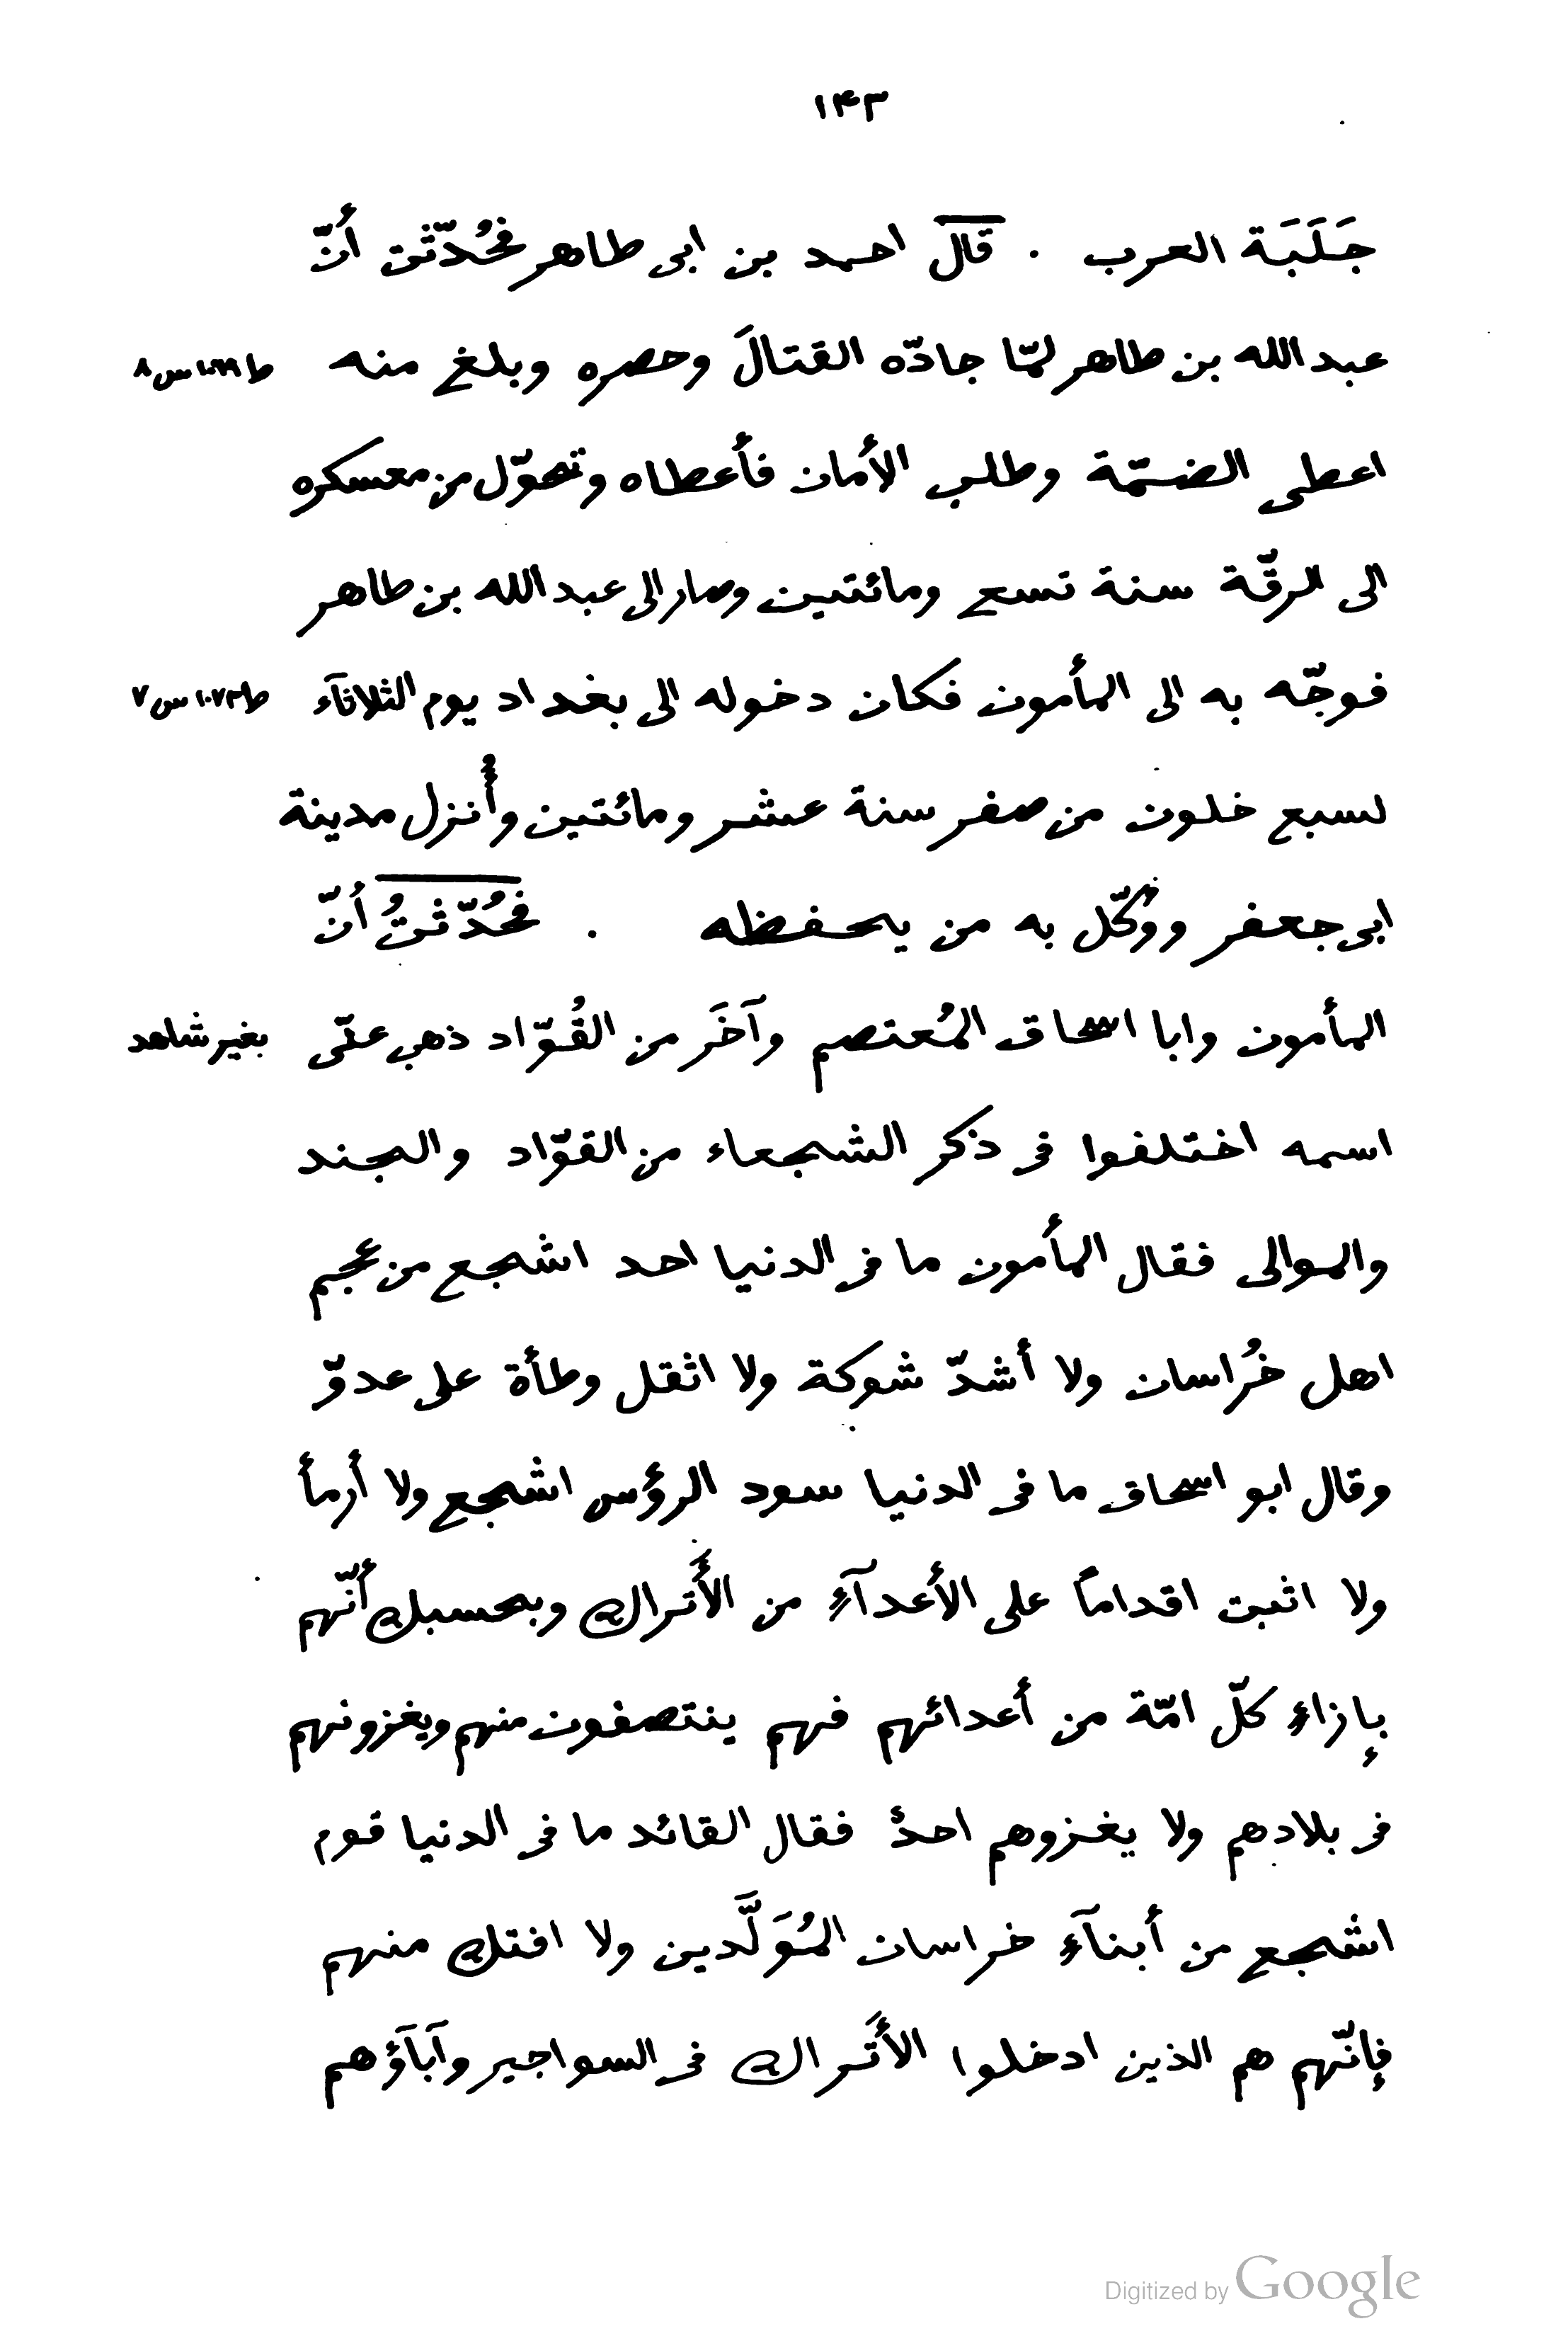 ١٤٣
جَلَبَة العرب . قال احمد بن ابى طاهر فحُدّثت أنّ
عبد الله بن طاهر لمّا جادّه القتالَ وحصره وبلغ منه ط ١٠٦٩ س ٨
اعطى الضمّة وطلب الأمان فأعطاه وتحوّل من معسكره
الى الرقّة سنة تسع ومائتين وصار الى عبد الله بن طاهر
فوجّه به الى المأمون فكان دخوله الى بغداد يوم الثلاثآء ط ١٠٧٣ س ٧
لسبع خلون من صفر سنة عشر ومائتين وأُنزل مدينة
ابى جعفر ووُكّل به من يحفظه . فحُدّثتُ أنّ
المأمون وابا اسحاق المُعتصم وآخَر من القُوّاد ذهب عنّى بغير شاهد
اسمه اختلفوا فى ذكر الشجعاء من القوّاد والجند
والموالى فقال المأمون ما فى الدنيا احد اشجع من عجم
اهل خُراسان ولا أشدّ شوكة ولا اثقل وطأة على عدوّ
وقال ابو اسحاق ما فى الدنيا سود الرؤس اشجع ولا أرمأ
ولا اثبت اقداماً على الأعدآءِ من الأَتراك وبحسبك أنّهم
بإزاءِ كلّ امّة من أعدائهم فهم ينتصفون منهم ويغزونهم
فى بلادهم ولا يغزوهم احدٌ فقال القائد ما فى الدنيا قوم
اشجع من أبنآءِ خراسان المُوَلَّدين ولا افتك منهم
فإنّهم هم الذين ادخلوا الأَتراك فى السواجير وآبآؤهم
Digitized by Google